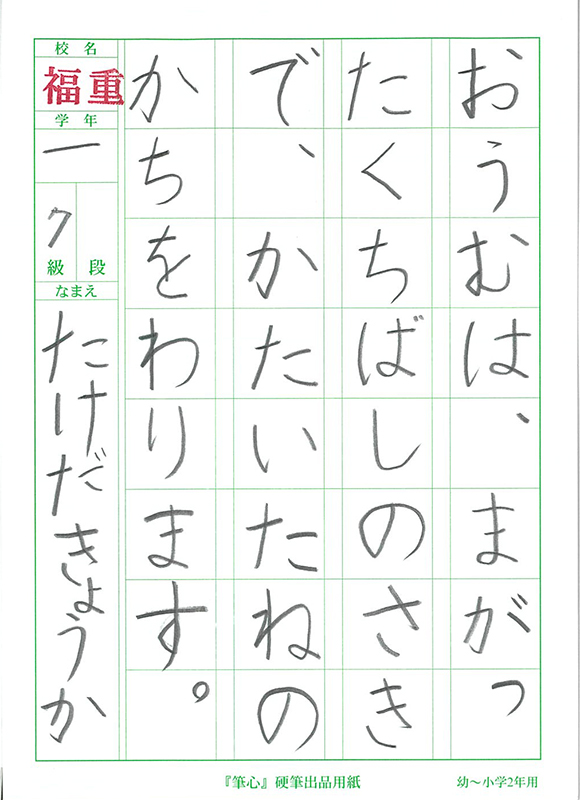 おうむは、まがっ
たくちばしのさき
で、かたいたねの
かちをわります。
校名
福重
学年
一
段
級
7
なまえ
たけだきょうか
『筆心』硬筆出品用紙
幼〜小学2年用